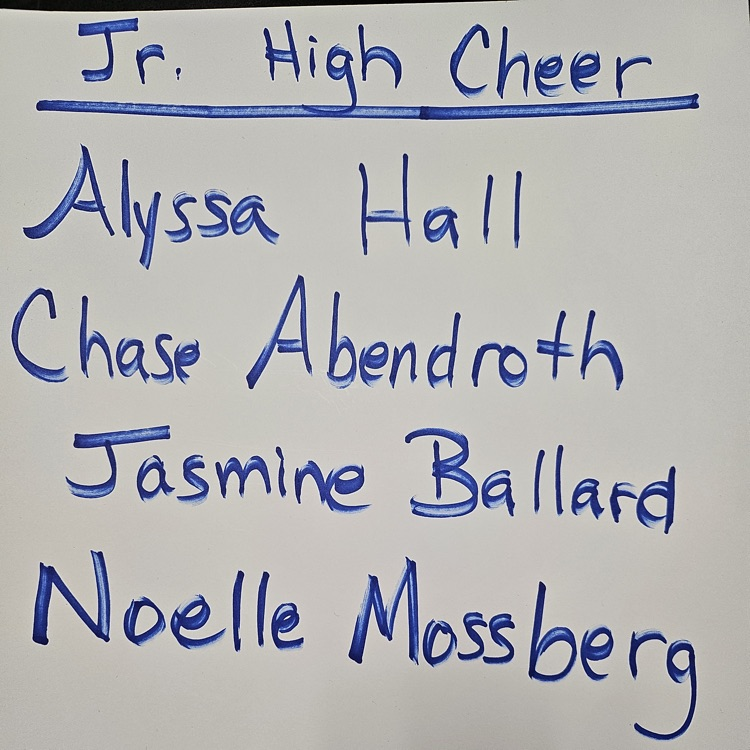 Jr. High Cheer
Alyssa Hall
Chase Abendroth
Jasmine Ballard
Noelle Mossberg